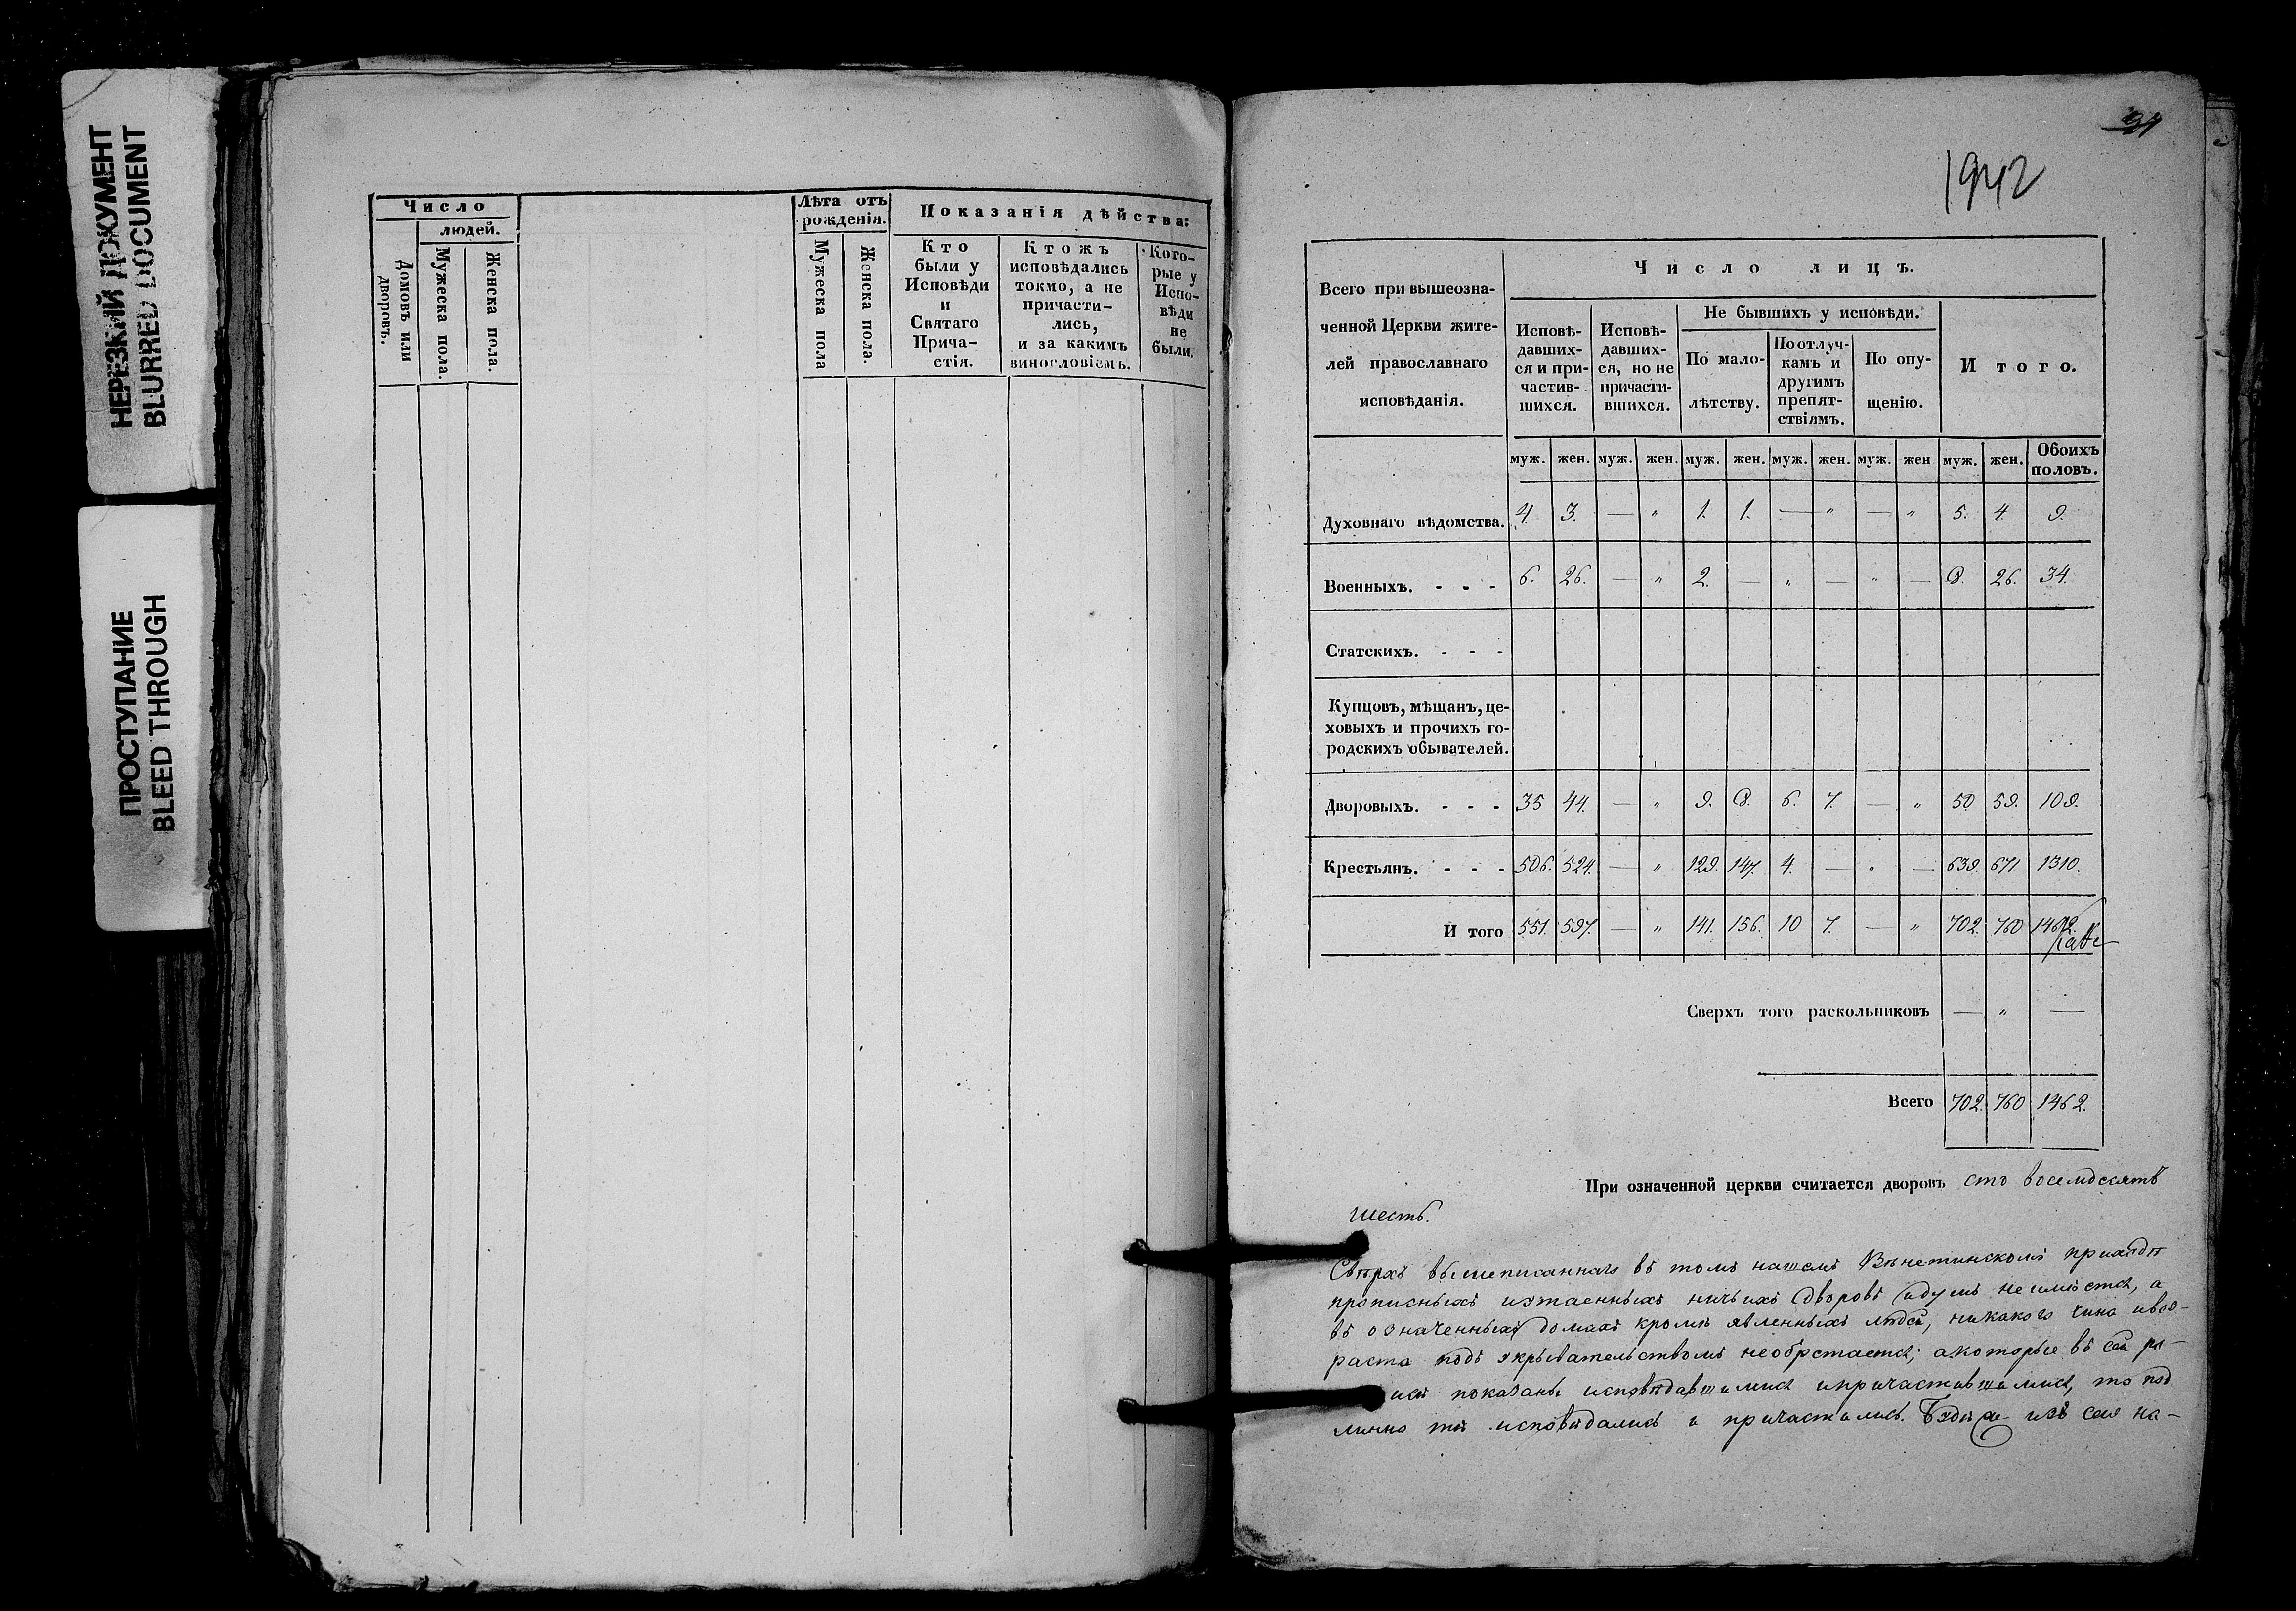 НЕРЕЗКИЙ ДОКУМЕНТ
BLURRED DOCUMENT
ПРОСТУПАНИЕ
BLEED THROUGH
Число
людей.
Домовъ или дворовъ.
Мужеска пола.
Женска пола.
Лѣта отъ рожденія.
Мужеска пола
Женска пола.
Показанія дѣйства:
Кто
были у
Исповѣди
и
Святаго
Прича-
стія.
Ктожъ
исповѣдались
токмо, а не
причасти-
лись,
и за какимъ
винословіемъ.
Кото-
рые у
Испо-
вѣди
не
были.
1942
Всего при вышеозна-
ченной Церкви жите-
лей православнаго
исповѣданія.
Число лицъ.
Исповѣ-
давших-
ся и при-
частив-
шихся.
Исповѣ-
давших-
ся, но не
причасти-
вшихся.
Не бывшихъ у исповѣди.
По мало-
лѣтству.
По отлуч-
камъ и
другимъ
препят-
ствіямъ.
По опу-
щенію.
Итого.
муж. жен. муж. жен. муж. жен. муж. жен. муж. жен муж. жен. Обоихъ половъ.
Духовнаго вѣдомства. 4. 3. — „ 1. 1. — „ — „ 5. 4. 9.
Военныхъ. - - - 6. 26. — „ 2. — „ — „ — 8. 26. 34.
Статскихъ. - - -
Купцовъ, мѣщанъ, це-
ховыхъ и прочихъ го-
родскихъ обывателей.
Дворовыхъ. - - - 35 44. — „ 9. 8. 6. 7. — „ 50 59. 109.
Крестьянъ. - - - 506. 524. — „ 129. 147. 4. — „ — 639. 671. 1310.
И того 551. 597. — „ 141. 156. 10 7. — „ 702. 760 1462.
Сверхъ того раскольниковъ — „ —
Всего 702. 760 1462.
При означенной церкви считается дворовъ сто восемдесятъ
шесть.
Сверхъ вышеписаннаго въ томъ нашемъ приходѣ
прописныхъ изтаенныхъ ничьихъ дворовъ идушъ не имѣется, а
въ означенныхъ домахъ кромѣ явленныхъ людей, никакого чина ивоз-
раста подъ укрывательствомъ необретается; акоторые въ сей ро-
иси показаны исповѣдавшимися ипричастившимися, то под
линно тѣ исповѣдались и причастились. Буде же изъ сея на-